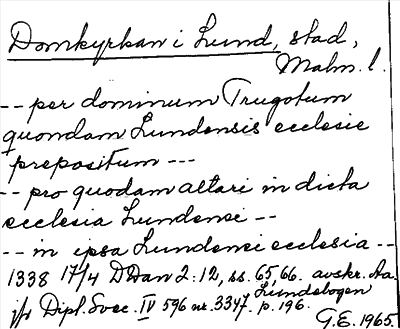 Domkyrkan i Lund, stad,
Malm. l.
-- per dominum Trugotum
quondam Lundensis ecclesie
prepositum ---
-- pro quodam altari in dicta
ecclesia Lundensi --
-- in ipsa Lundensi ecclesia --
1338 17/4 DDan 2:12, ss. 65, 66. avskr. Aa.
Lundabogen
jfr Dipl. Svec. IV 596 nr. 3347. p. 196.
G.E. 1965.